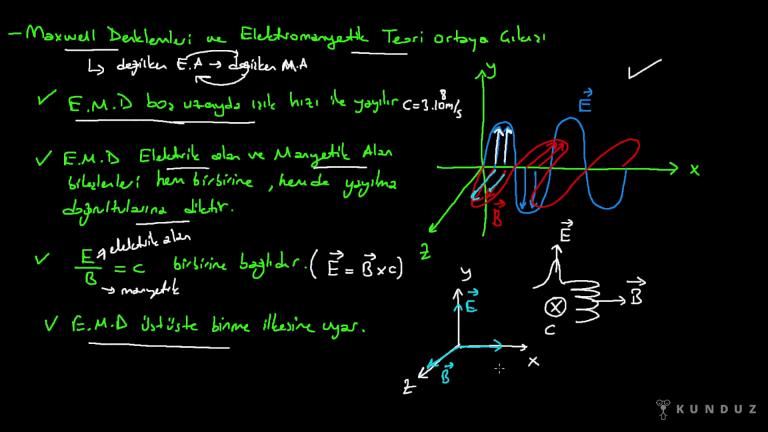 - Maxwell Denklemleri ve Elektromanyetik Teori ortaya Çıkışı
↳ değişken E.A → değişken M.A
✓ E.M.D boş uzayda ışık hızı ile yayılır C=3.10⁸m/s
✓ E.M.D Elektrik alan ve Manyetik Alan
bileşenleri hem birbirine, hemde yayılma
doğrultularına diktir.
✓ E/B = C birbirine bağlıdır. (E⃗ = B⃗ x c)
→ elektrik alan
→ manyetik
✓ E.M.D üstüste binme ilkesine uyar.
y
E⃗
x
B⃗
z
y
E⃗
x
B⃗
z
E⃗
B⃗
C
KUNDUZ